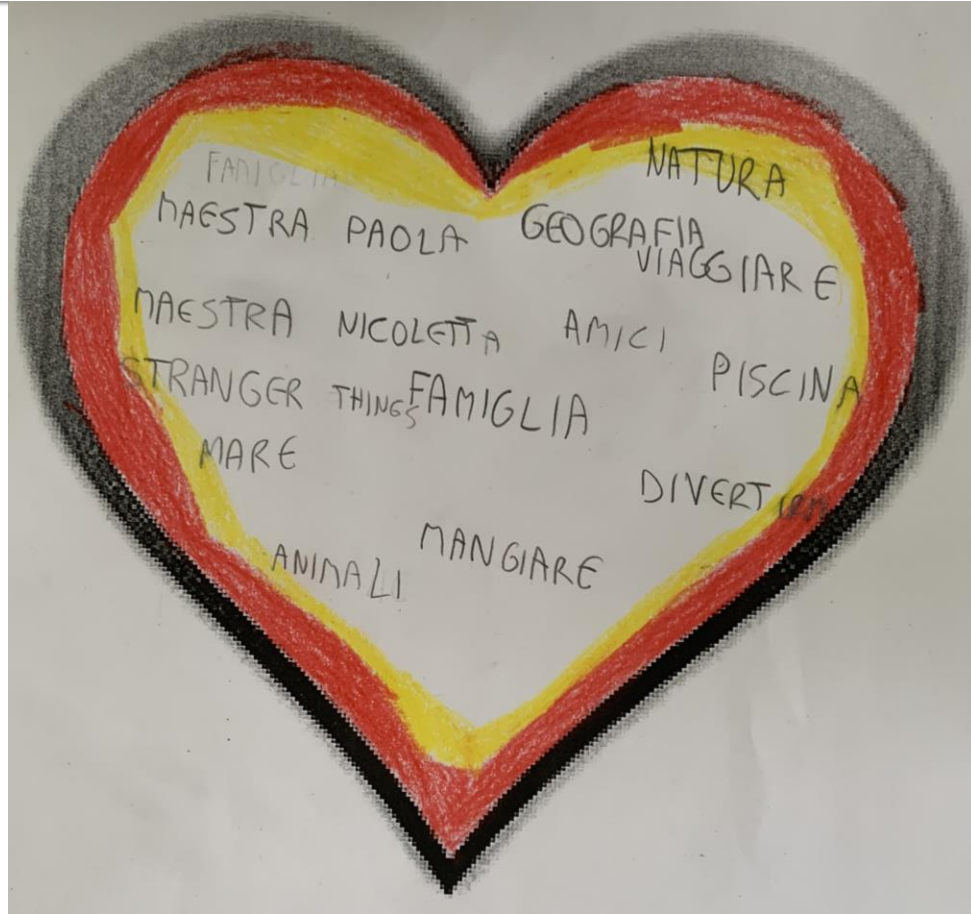 FAMIGLIA
NATURA
MAESTRA PAOLA
GEOGRAFIA
VIAGGIARE
MAESTRA NICOLETTA
AMICI
PISCINA
STRANGER THINGS
FAMIGLIA
MARE
DIVERTIRSI
MANGIARE
ANIMALI